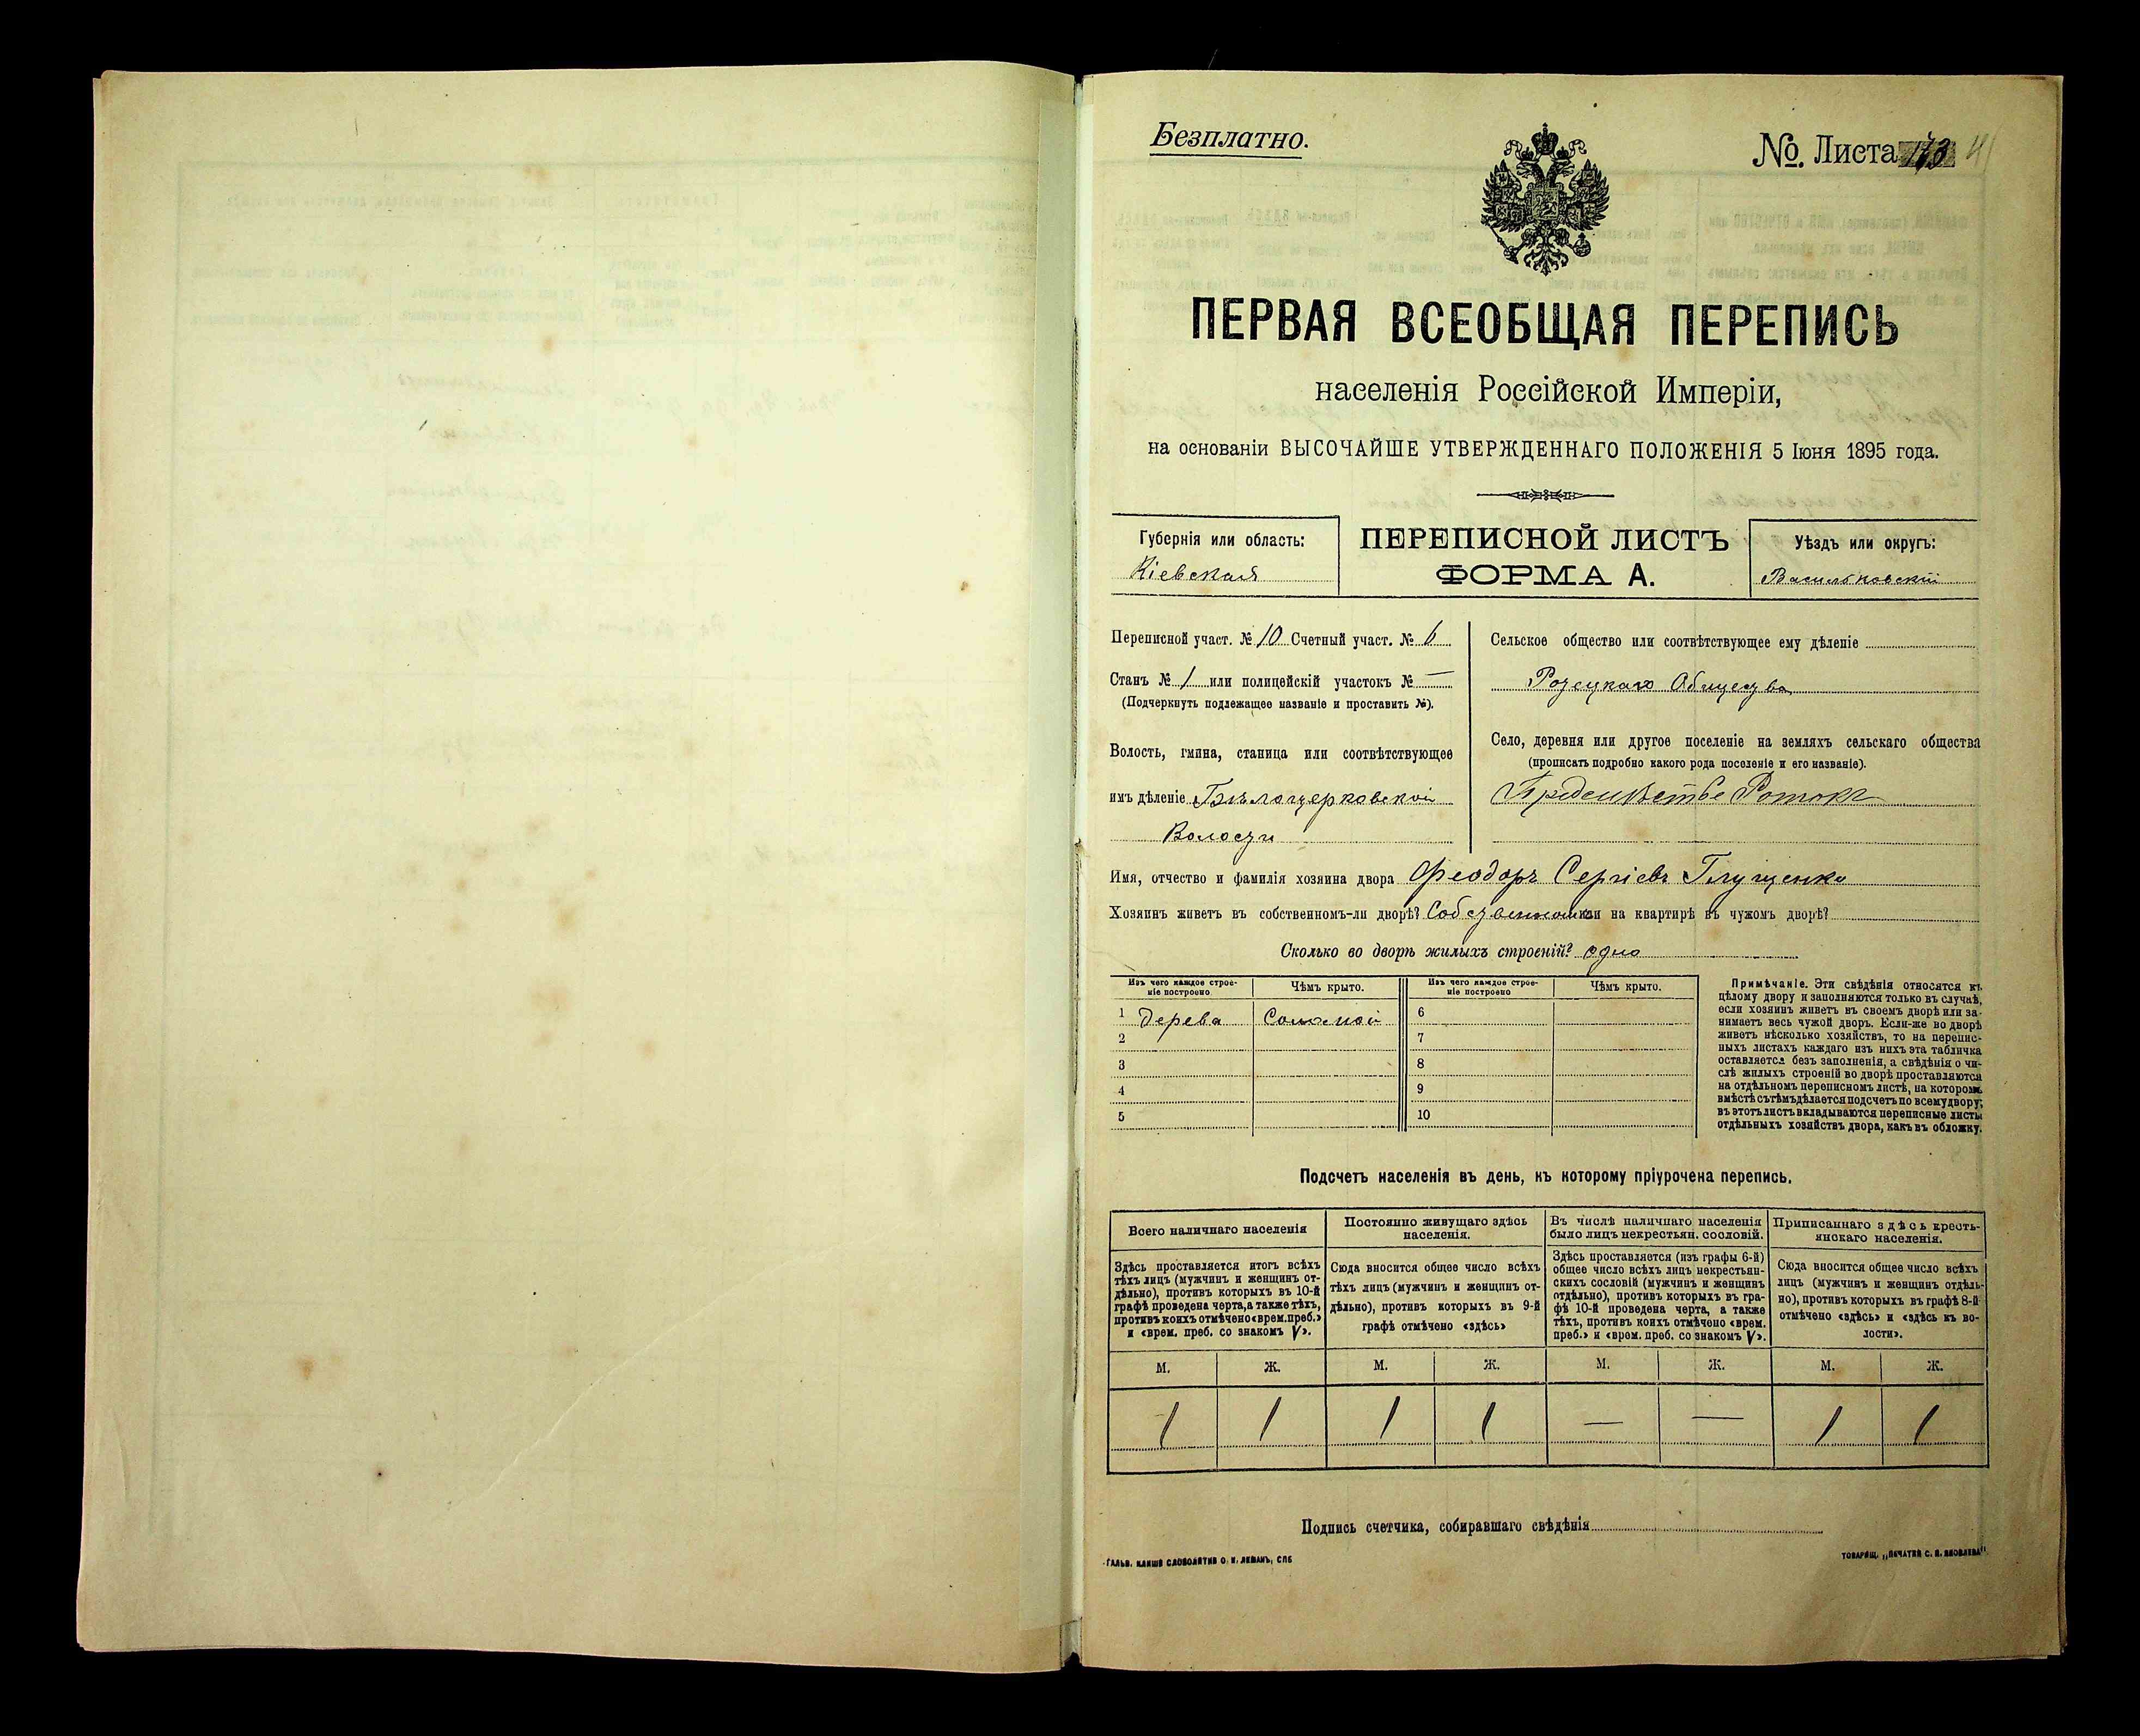 Безплатно.
№. Листа
ПЕРВАЯ ВСЕОБЩАЯ ПЕРЕПИСЬ
населенія Россійской Имперіи,
на основаніи ВЫСОЧАЙШЕ УТВЕРЖДЕННАГО ПОЛОЖЕНІЯ 5 Іюня 1895 года.
Губернія или область:
Кіевская
ПЕРЕПИСНОЙ ЛИСТЪ
ФОРМА А.
Уѣздъ или округъ:
Васильковскій
Переписной участ. № 10 Счетный участ. № 6
Станъ № 1 или полицейскій участокъ № —
(Подчеркнуть подлежащее названіе и проставить №).
Волость, гмина, станица или соотвѣтствующее
имъ дѣленіе Бѣлоцерковской
Волости
Сельское общество или соотвѣтствующее ему дѣленіе
Общества
Село, деревня или другое поселеніе на земляхъ сельскаго общества
(прописать подробно какого рода поселеніе и его названіе).
Ротокъ
Имя, отчество и фамилія хозяина двора Феодоръ Сергіевъ Глущенко
Хозяинъ живетъ въ собственномъ-ли дворѣ? Собственномъ или на квартирѣ въ чужомъ дворѣ?
Сколько во дворѣ жилыхъ строеній? одно
Изъ чего каждое строе-
ніе построено
Чѣмъ крыто.
Изъ чего каждое строе-
ніе построено
Чѣмъ крыто.
1 Дерева Соломой 6
2 7
3 8
4 9
5 10
Примѣчаніе. Эти свѣдѣнія относятся къ
цѣлому двору и заполняются только въ случаѣ,
если хозяинъ живетъ въ своемъ дворѣ или за-
нимаетъ весь чужой дворъ. Если-же во дворѣ
живетъ нѣсколько хозяйствъ, то на перепис-
ныхъ листахъ каждаго изъ нихъ эта табличка
оставляется безъ заполненія, а свѣдѣнія о чи-
слѣ жилыхъ строеній во дворѣ проставляются
на отдѣльномъ переписномъ листѣ, на которомъ
вмѣстѣ съ тѣмъ дѣлается подсчетъ по всему двору;
въ этотъ листъ вкладываются переписные листы
отдѣльныхъ хозяйствъ двора, какъ въ обложку.
Подсчетъ населенія въ день, къ которому пріурочена перепись.
Всего наличнаго населенія
Постоянно живущаго здѣсь
населенія.
Въ числѣ наличнаго населенія
было лицъ некрестьян. сословій.
Приписаннаго здѣсь кресть-
янскаго населенія.
Здѣсь проставляется итогъ всѣхъ
тѣхъ лицъ (мужчинъ и женщинъ от-
дѣльно), противъ которыхъ въ 10-й
графѣ проведена черта, а также тѣхъ,
противъ коихъ отмѣчено «врем. преб.»
и «врем. преб. со знакомъ V».
Сюда вносится общее число всѣхъ
тѣхъ лицъ (мужчинъ и женщинъ от-
дѣльно), противъ которыхъ въ 9-й
графѣ отмѣчено «здѣсь»
Здѣсь проставляется (изъ графы 6-й)
общее число всѣхъ лицъ некрестьян-
скихъ сословій (мужчинъ и женщинъ
отдѣльно), противъ которыхъ въ гра-
фѣ 10-й проведена черта, а также
тѣхъ, противъ коихъ отмѣчено «врем.
преб.» и «врем. преб. со знакомъ V».
Сюда вносится общее число всѣхъ
лицъ (мужчинъ и женщинъ отдѣль-
но), противъ которыхъ въ графѣ 8-й
отмѣчено «здѣсь» и «здѣсь къ во-
лости».
М. Ж. М. Ж. М. Ж. М. Ж.
1 1 1 1 — — 1 1
Подпись счетчика, собиравшаго свѣдѣнія
ГАЛЬВ. КЛИШЕ СЛОВОЛИТНИ О. И. ЛЕМАНЪ, СПБ
ТОВАРИЩ. „ПЕЧАТНЯ С. П. ЯКОВЛЕВА"